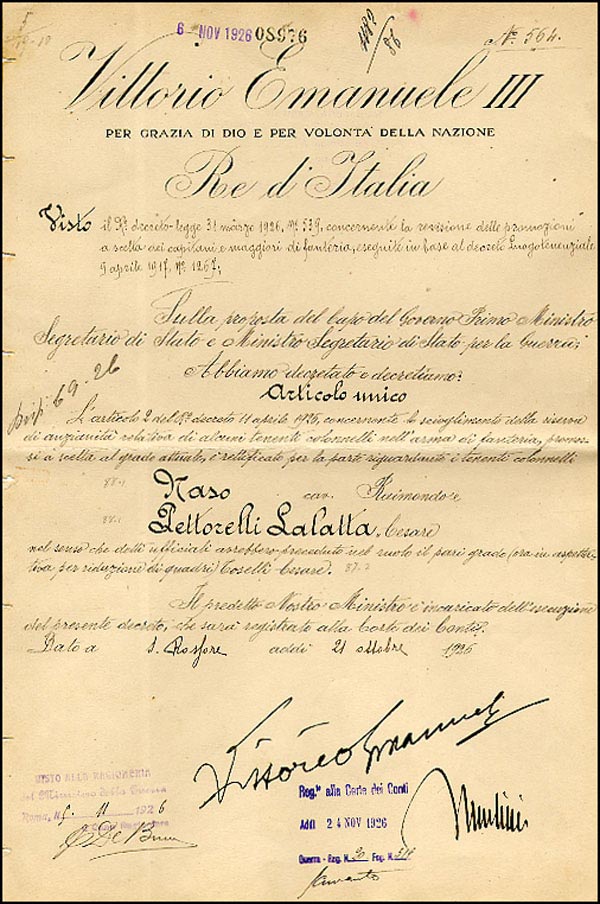 6 NOV 1926 08976
N° 564.
Vittorio Emanuele III
PER GRAZIA DI DIO E PER VOLONTA' DELLA NAZIONE
Re d'Italia
Visto il R° decreto-legge 31 marzo 1926, N° 539, concernente la revisione delle promozioni
a scelta dei capitani e maggiori di fanteria, eseguite in base al decreto Luogotenenziale
5 aprile 1917, N° 1267;
Sulla proposta del Capo del Governo Primo Ministro
Segretario di Stato e Ministro Segretario di Stato per la Guerra;
Abbiamo decretato e decretiamo:
Articolo unico
L'articolo 2 del R° decreto 11 aprile 1926, concernente lo scioglimento della riserva
di anzianità relativa di alcuni tenenti colonnelli nell'arma di fanteria, promos-
si a scelta al grado attuale, è rettificato per la parte riguardante i tenenti colonnelli
Naso cav. Raimondo e
Pettorelli Lalatta, Cesare
nel senso che detti ufficiali avrebbero preceduto nel ruolo il pari grado (ora in aspetta-
tiva per riduzione di quadri) Coselli Cesare.
Il predetto Nostro Ministro è incaricato dell'esecuzione
del presente decreto, che sarà registrato alla Corte dei Conti.
Dato a S. Rossore addì 21 ottobre 1926
Vittorio Emanuele
VISTO ALLA RAGIONERIA
del Ministero della Guerra
Roma, 11 1926
Reg.to alla Corte dei Conti
Addì 24 NOV 1926
Guerra - Reg. N. Fog. N.
Mussolini